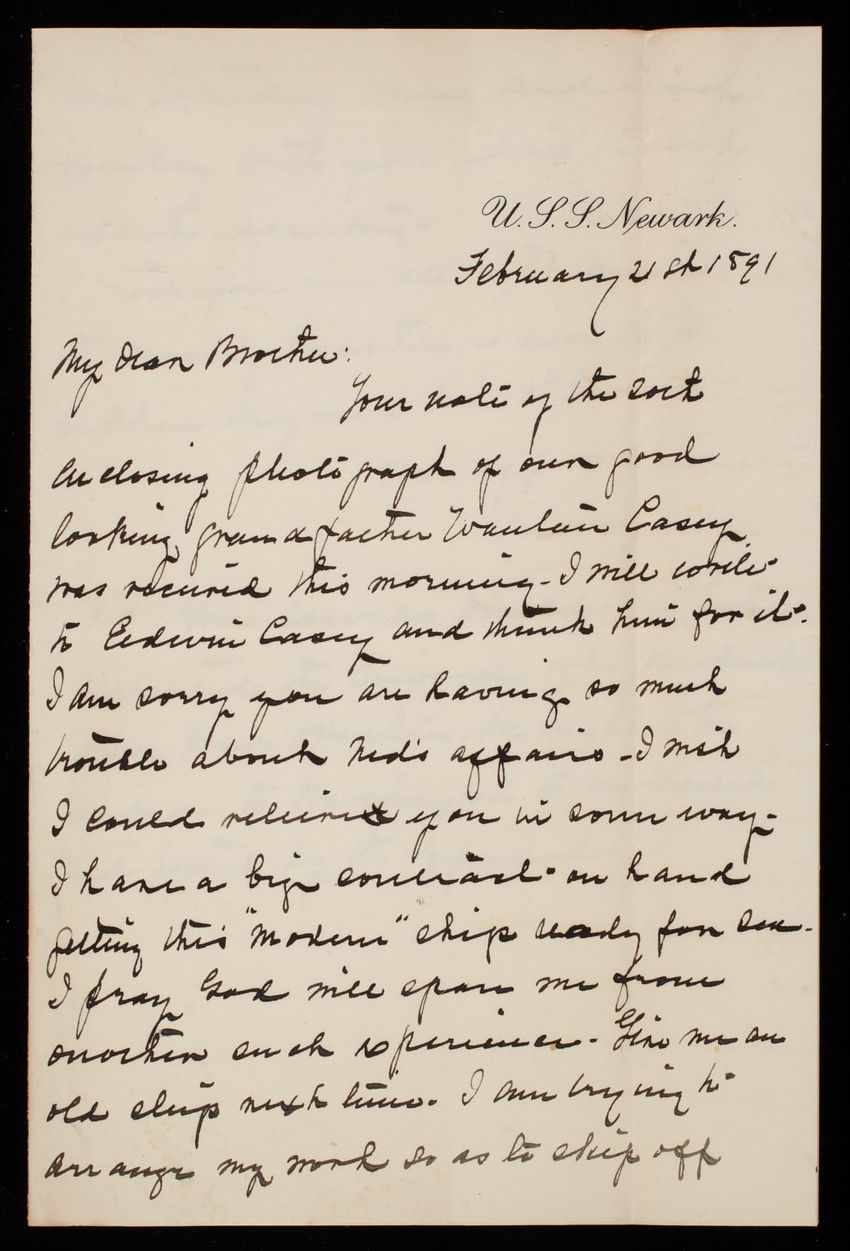 U.S.S. Newark.
February 21st 1891
My dear Brother:
Your note of the 20th
enclosing photograph of our good
looking grandfather Wanton Casey
was received this morning - I will write
to Edwin Casey and thank him for it.
I am sorry you are having so much
trouble about Ned's affairs - I wish
I could relieve you in some way -
I have a big contract on hand
getting this "modern" ship ready for sea.
I pray God will spare me from
another such experience. Give me an
old ship next time. I am trying to
arrange my work so as to skip off